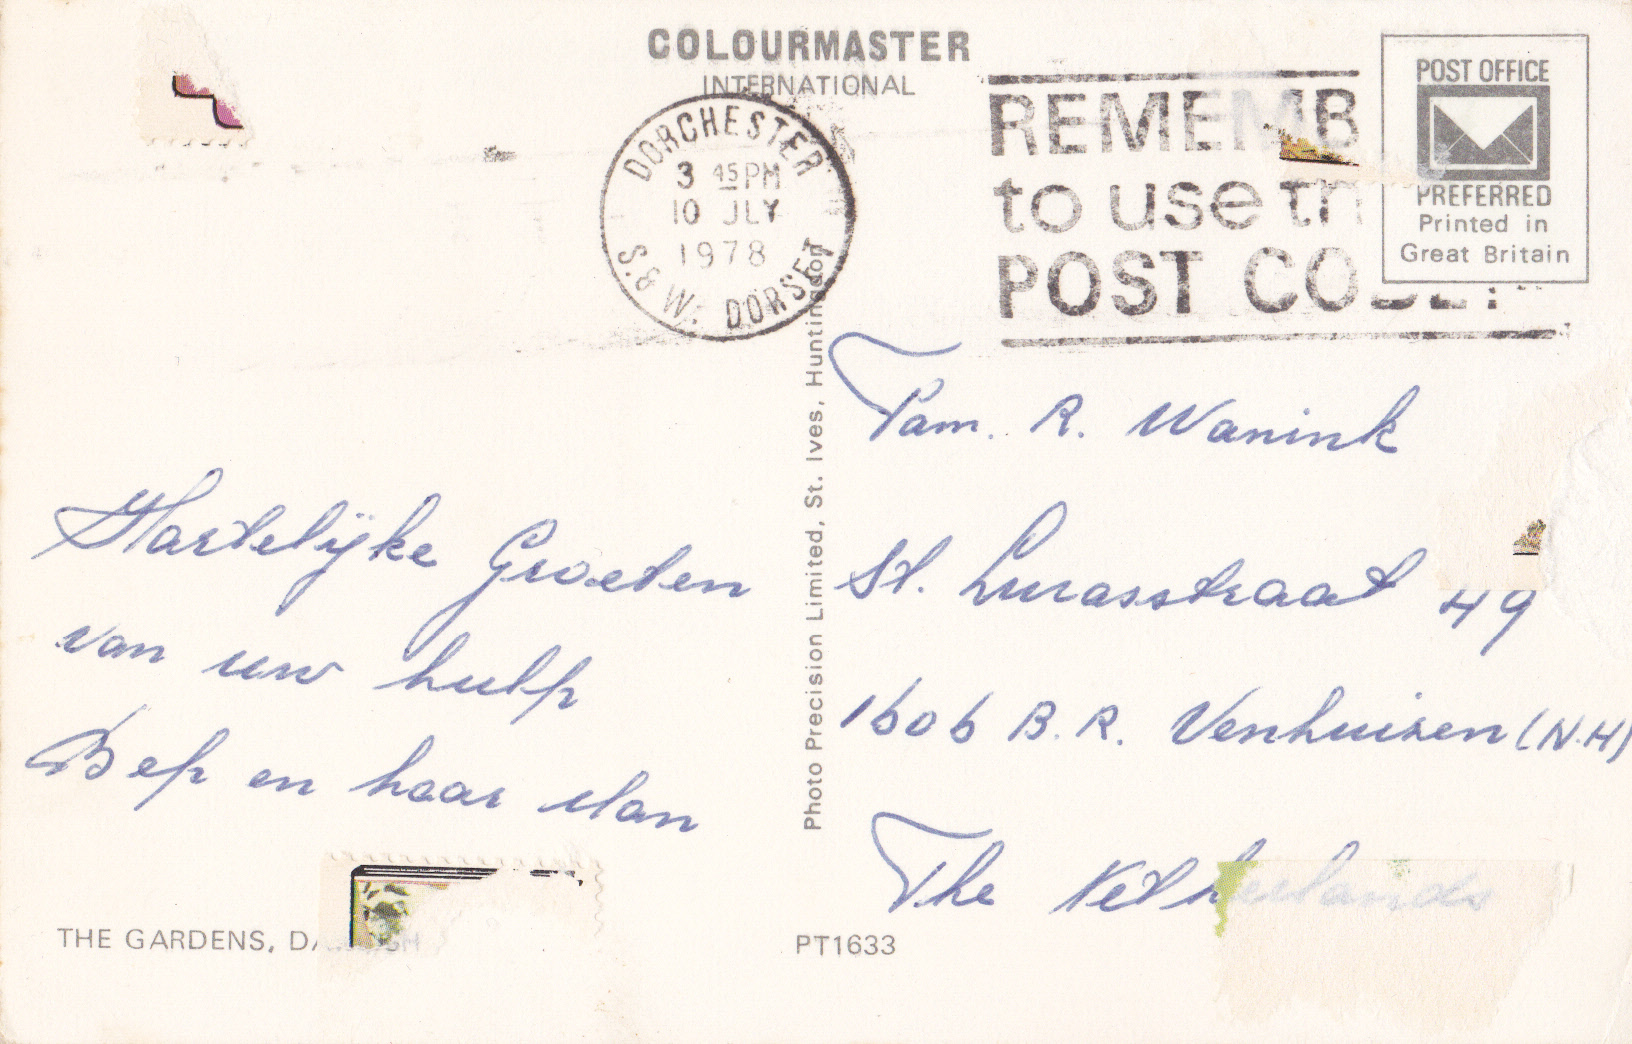 COLOURMASTER
INTERNATIONAL
DORCHESTER
3 45PM
10 JLY
1978
S. & W. DORSET
REMEMB
to use th
POST CO
POST OFFICE
PREFERRED
Printed in
Great Britain
Hartelijke Groeten
van uw hulp
Bep en haar Man
Fam. R. Wanink
St. Lucasstraat 49
1606 B.R. Venhuizen (N.H)
The Netherlands
Photo Precision Limited, St. Ives, Huntingdon
THE GARDENS,
PT1633